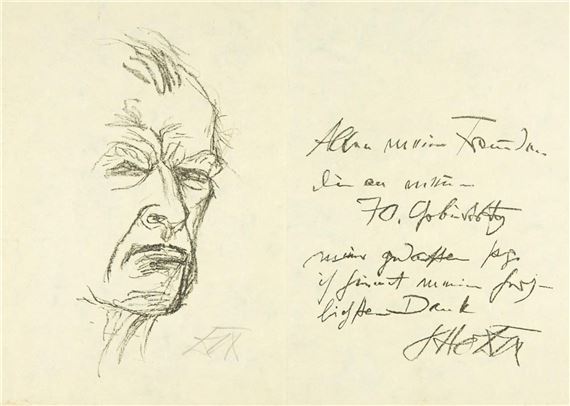 Allen meinen Freunden
die an meinem
70. Geburtstag
meiner gedachten sage
ich hiermit meinen herz-
lichsten Dank